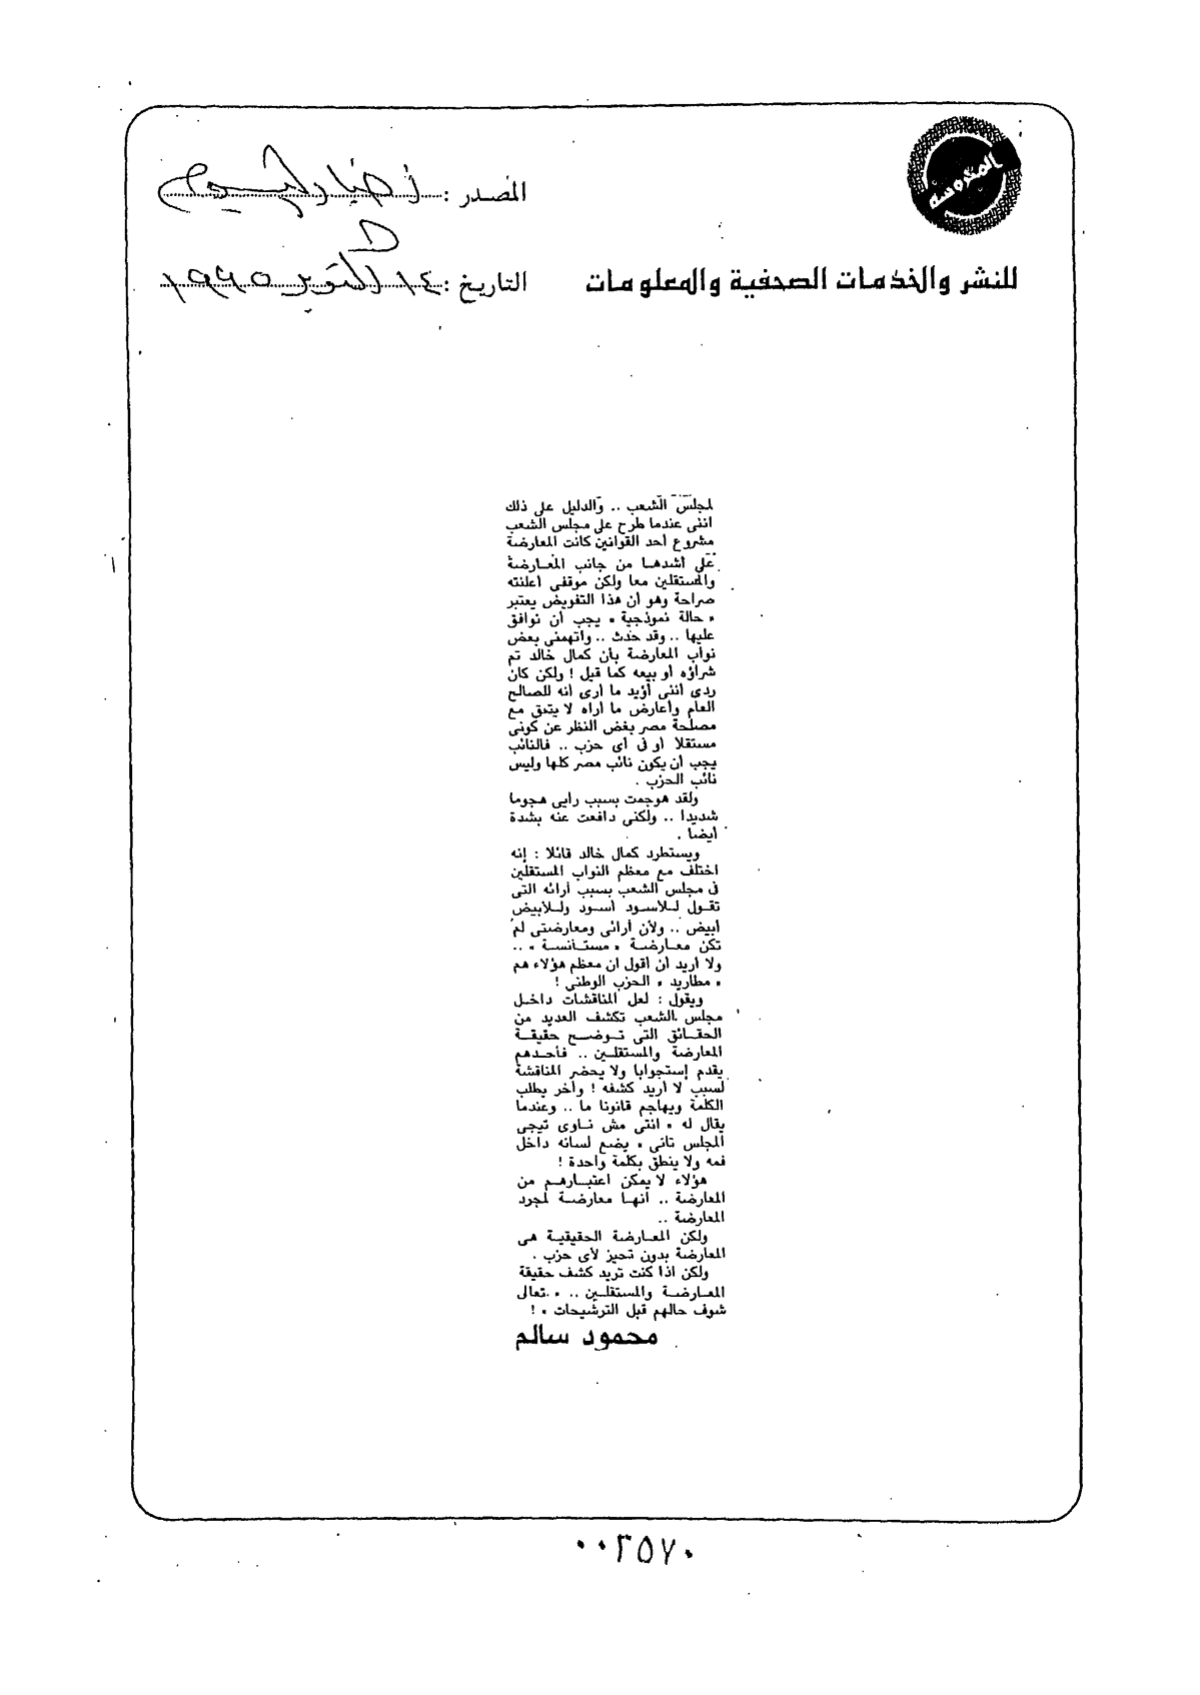 المحروسة
المصدر : أخبار اليوم
للنشر والخدمات الصحفية والمعلومات
التاريخ : ١٤ أكتوبر ١٩٩٥
لمجلس الشعب .. والدليل على ذلك
اننى عندما طرح على مجلس الشعب
مشروع أحد القوانين كانت المعارضة
على أشدهـا من جانب المعـارضة
والمستقلين معا ولكن موقفى اعلنته
صراحة وهو أن هذا التفويض يعتبر
« حالة نموذجية » يجب أن نوافق
عليها .. وقد حدث .. واتهمنى بعض
نواب المعارضة بأن كمال خالد تم
شراؤه أو بيعه كما قيل ! ولكن كان
ردى أننى أؤيد ما أرى أنه للصالح
العام وأعارض ما أراه لا يتفق مع
مصلحة مصر بغض النظر عن كونى
مستقلا أو فى أى حزب .. فالنائب
يجب أن يكون نائب مصر كلها وليس
نائب الحزب .
ولقد هوجمت بسبب رأيى هجوما
شديدا .. ولكنى دافعت عنه بشدة
أيضا .
ويستطرد كمال خالد قائلا : إنه
اختلف مع معظم النواب المستقلين
فى مجلس الشعب بسبب أرائه التى
تقـول لـلأسـود أسـود ولـلأبيض
أبيض .. ولأن أرائى ومعارضتى لم
تكن معـارضـة « مستـأنسـة » ..
ولا أريد أن أقول ان معظم هؤلاء هم
« مطاريد » الحزب الوطنى !
ويقول : لعل المناقشات داخـل
مجلس الشعب تكشف العديد من
الحقـائق التى تـوضـح حقيقـة
المعارضة والمستقلـين .. فأحـدهم
يقدم إستجوابا ولا يحضر المناقشة
لسبب لا أريد كشفه ! وأخر يطلب
الكلمة ويهاجم قانونا ما .. وعندما
يقال له « انتى مش نـاوى تيجى
المجلس تانى » يضع لسانه داخل
فمه ولا ينطق بكلمة واحدة !
هؤلاء لا يمكن اعتبـارهـم من
المعارضة .. أنهـا معارضـة لمجرد
المعارضة ..
ولكن المعـارضة الحقيقيـة هى
المعارضة بدون تحيز لأى حزب .
ولكن اذا كنت تريد كشف حقيقة
المعـارضـة والمستقلـين .. « تعالى
شوف حالهم قبل الترشيحات » !
محمود سالم
٠٠٢٥٧٠